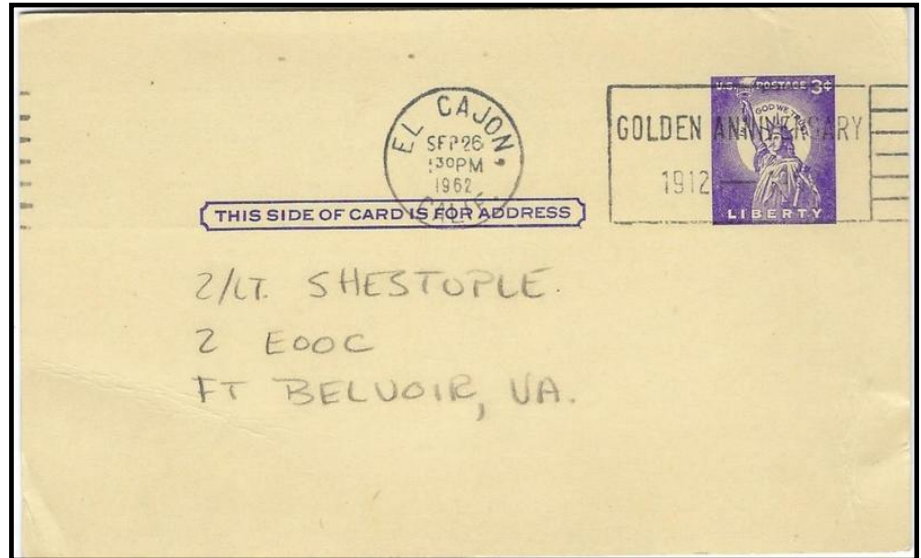 EL CAJON
SEP 26
30 PM
1962
CALIF.
GOLDEN ANNIVERSARY
1912
U.S. POSTAGE 3¢
GOD WE TRUST
LIBERTY
THIS SIDE OF CARD IS FOR ADDRESS
2/LT. SHESTOPLE.
2 EOOC
FT BELVOIR, VA.